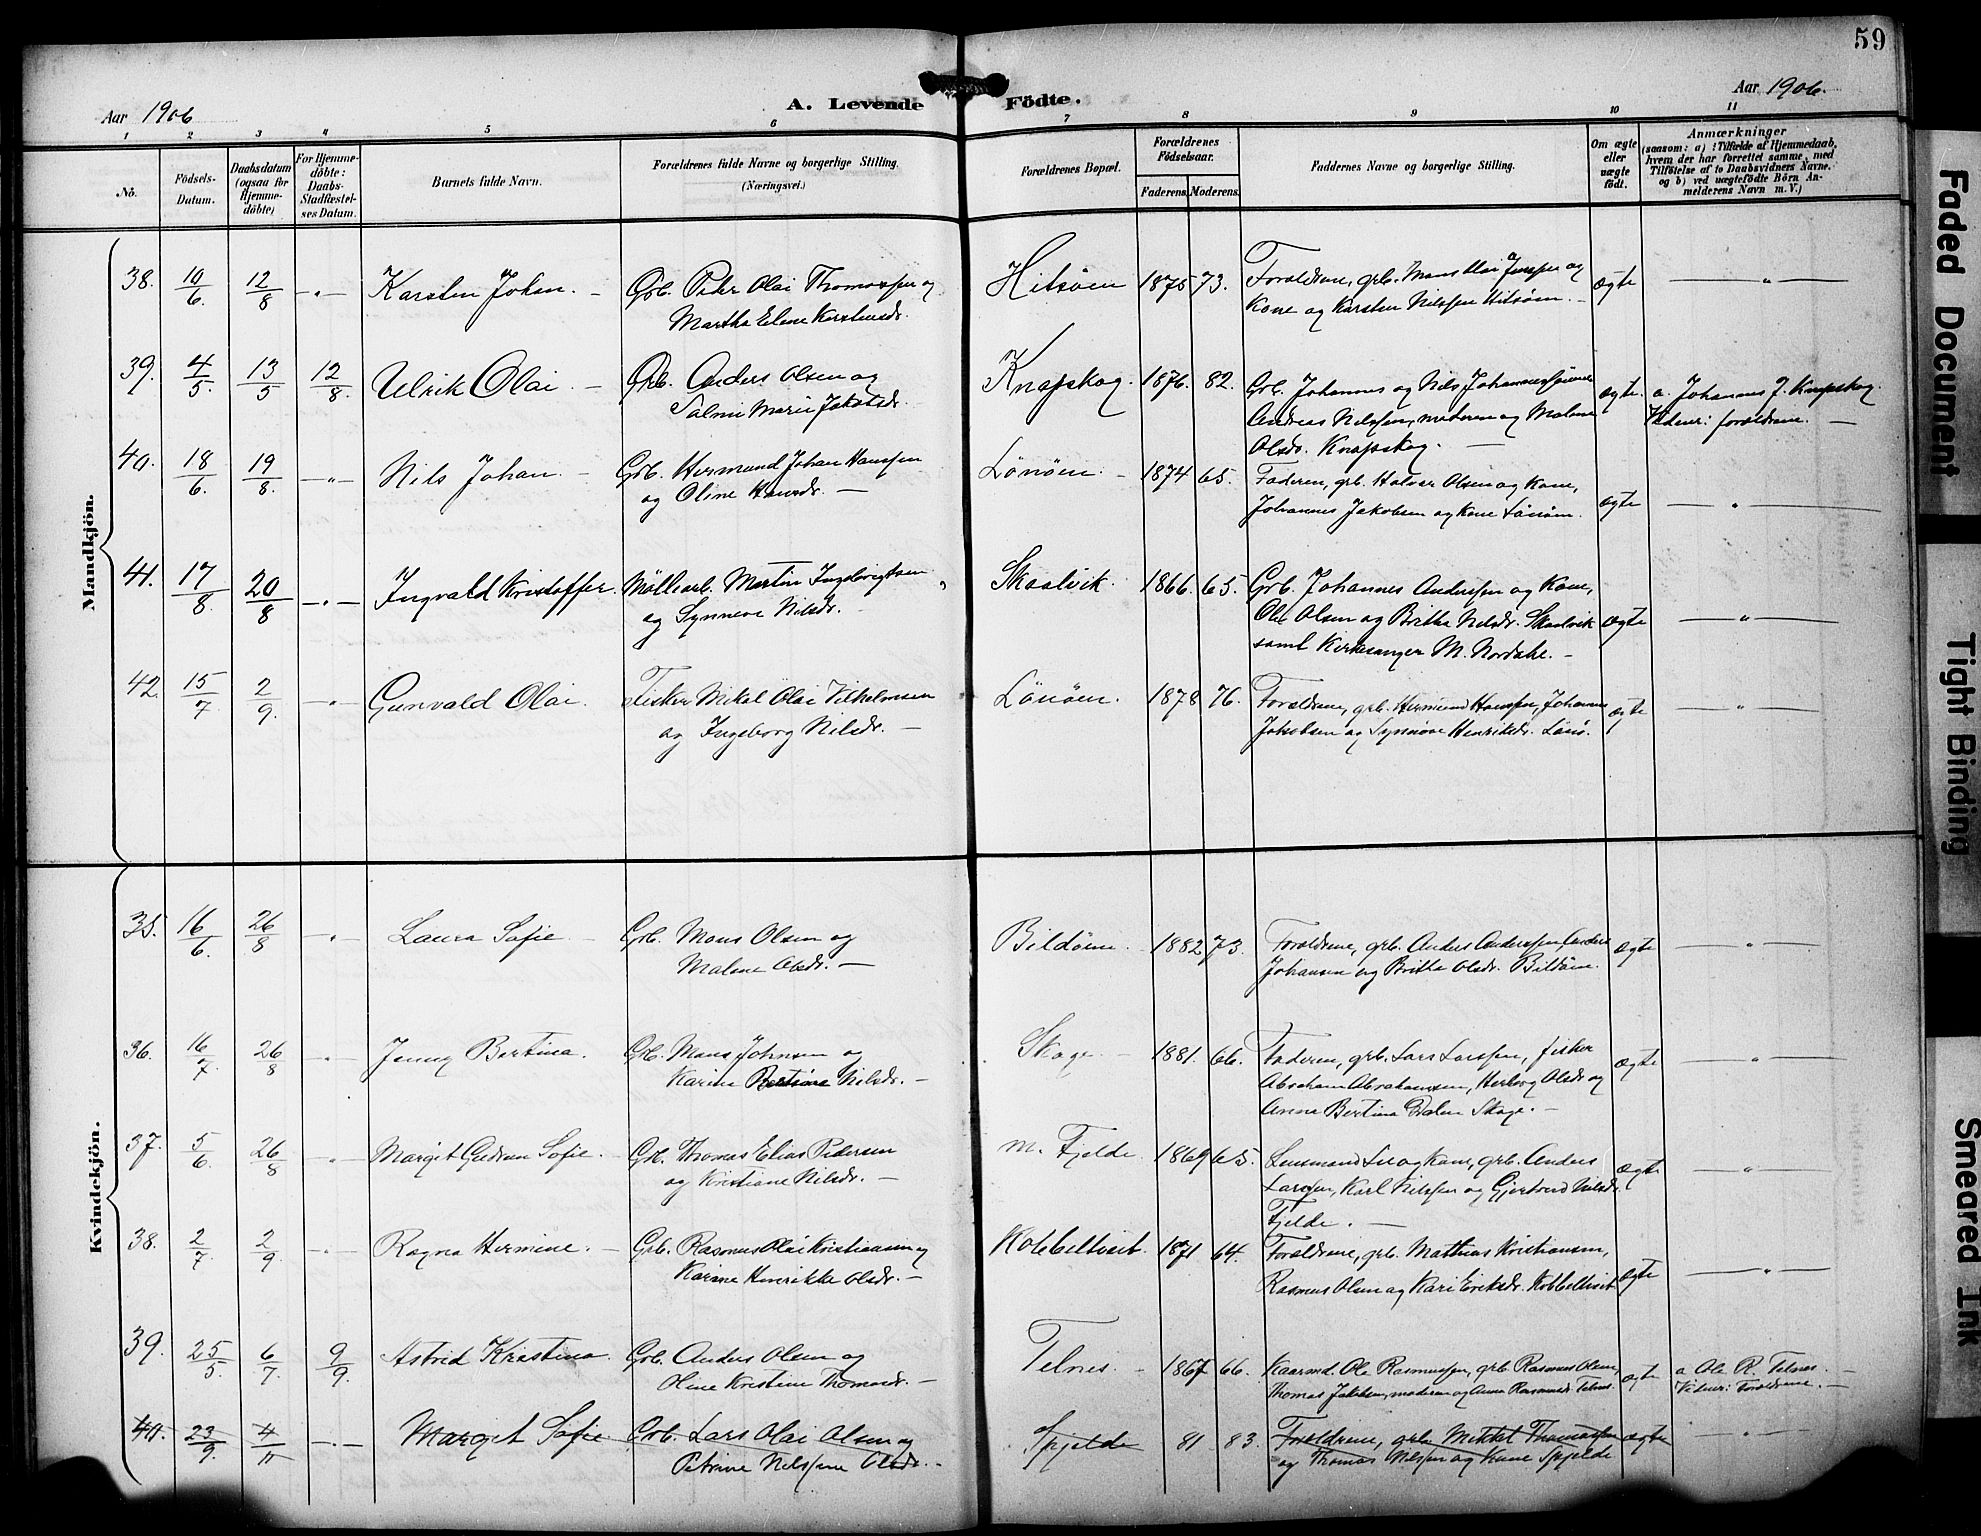 59
Aar 1906
A. Levende
Födte.
Aar 1906.
1 2 3 4 5 6 7 8 9 10 11
No.
Födsels-
Datum.
Daabsdatum
(ogsaa for
Hjemme-
döbte)
For Hjemme-
döbte:
Daabs-
Stadfæstel-
ses Datum.
Barnets fulde Navn.
Forældrenes fulde Navne og borgerlige Stilling.
(Næringsvei.)
Forældrenes Bopæl.
Forældrenes
Födselsaar.
Faderens. Moderens.
Faddernes Navne og borgerlige Stilling.
Om ægte
eller
uægte
födt.
Anmærkninger
(saasom: a) i Tilfælde af Hjemmedaab,
hvem der har forrettet samme, med
Tilföielse af to Daabsvidners Navne.
og b) ved uægtefödte Börn An-
melderens Navn m. V.)
Mandkjön.
38. 10/6 12/8 -"- Karsten Johan. - Grb. Peder Olai Thomassen og
Martha Elene Karstensdr.
Hitsöen 1875 73. Forældrene, grb. Mons Olai Jenssen og
Kone og Karsten Nilssen Hitsöen. -
ægte -"-
39. 4/5 13/5 12/8 Ulrik Olai - Grb. Anders Olsen og
Salmi Marie Jakobsdr.
Knapskog. 1876. 82. Grb. Johannes og Nils
Andreas Nilssen, moderen og Malene
Olsdr. Knapskog. -
ægte. a. Johannes J. Knapskog.
Vidner: forældrene. -
40. 18/6. 19/8. -"- Nils Johan. - Grb. Hermund Johan Hanssen
og Oline Hansdr. -
Lönöen. - 1874 65. Faderen, grb. Halvor Olsen og Kone,
Johannes Jakobsen og Kone Lönöen.
ægte -"-
41. 17/8. 20/8 -"- Ingvald Kristoffer. Möllearb. Martin Ingebrigtsen
og Synneve Nilsdr. -
Skaalvik. 1866. 65. Grb. Johannes Anderssen og Kone,
Ole Olsen og Britha Nilsdr. Skaalvik
samt Kirkesanger M. Nordahl. -
ægte -"-
42. 15/7 2/9. -"- Gunvald Olai. Fisker Mikal Olai Vilhelmsen
og Ingeborg Nilsdr. -
Lönöen. 1878 76. Forældrene, grb. Hermund Hanssen, Johannes
Jakobsen og Synnöve Henriksdr. Lönö.
ægte -"-
Kvindekjön.
35. 16/6. 26/8 -"- Laura Sofie. - Grb. Mons Olsen og
Malene Olsdr. -
Bildöen. 1882 73. Forældrene, grb. Anders Anderssen, Anders
Johansen og Britha Olsdr. Bildöen.
ægte -"-
36. 16/7. 26/8 -"- Jenny Bertina. Grb. Mons Johnsen og
Karina Bertina Nilsdr. -
Skoge. 1881. 66. Faderen, grb. Lars Larssen, fisker
Abraham Abrahamsen, Herborg Olsdr og
Anna Bertina Skoge. -
ægte -"-
37. 5/6. 26/8 -"- Margit Gudrun Sofie. Grb. Thomas Elias Pedersen
og Kristiane Nilsdr. -
m. Fjelde. 1869 65. Lensmand Lie og Kone, grb. Anders
Larssen, Karl Nilssen og Gjertrud Nilsdr.
Fjelde. -
ægte -"-
38. 2/7. 2/9. -"- Ragna Hermine. - Grb. Rasmus Olai Kristiansen og
Karine Henrikke Olsdr. -
Kobbeltveit. 1871 64. Forældrene, grb. Mathias Kristiansen,
Rasmus Olsen og Kari Eriksdr. Kobbeltveit
ægte -"-
39. 25/5. 6/7. 9/9. Astrid Kristina. Grb. Anders Olsen og
Oline Kristine Thomasdr. -
Telnes. - 1867 66. Kaarmd. Ole Rasmussen, grb. Rasmus Olsen,
Thomas Jakobsen, moderen og Anna Rasmusdr. Telnes.
ægte a. Ole R. Telnes.
Vidner: Forældrene. -
40. 23/9. 4/11 -"- Margit Sofie Grb. Lars Olai Olsen og
Petrine Nilssine Olsdr. -
Spjelde 81 83. Forældrene, grb. Mikkel Thomassen
og Thomas Nilssen og Kone Spjelde
ægte -"-
Faded Document
Tight Binding
Smeared Ink